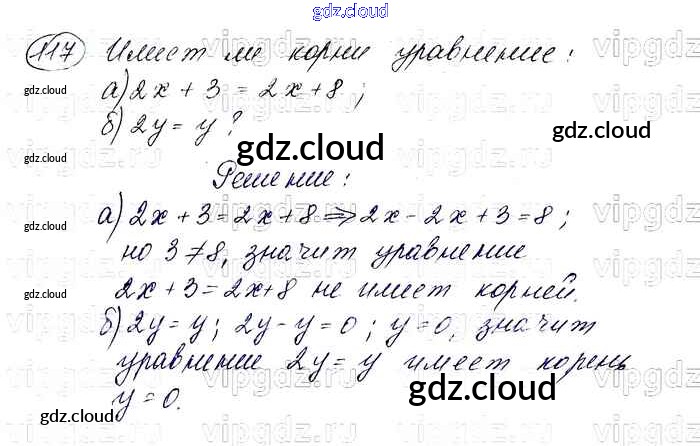 gdz.cloud
117 Имеет ли корни уравнение:
а) 2x + 3 = 2x + 8;
б) 2y = y?
Решение:
а) 2x + 3 = 2x + 8 ⇒ 2x - 2x + 3 = 8;
но 3 ≠ 8, значит уравнение
2x + 3 = 2x + 8 не имеет корней.
б) 2y = y; 2y - y = 0; y = 0, значит
уравнение 2y = y имеет корень
y = 0.
gdz.cloud
gdz.cloud
gdz.cloud
gdz.cloud
gdz.cloud
gdz.cloud
gdz.cloud
gdz.cloud
gdz.cloud